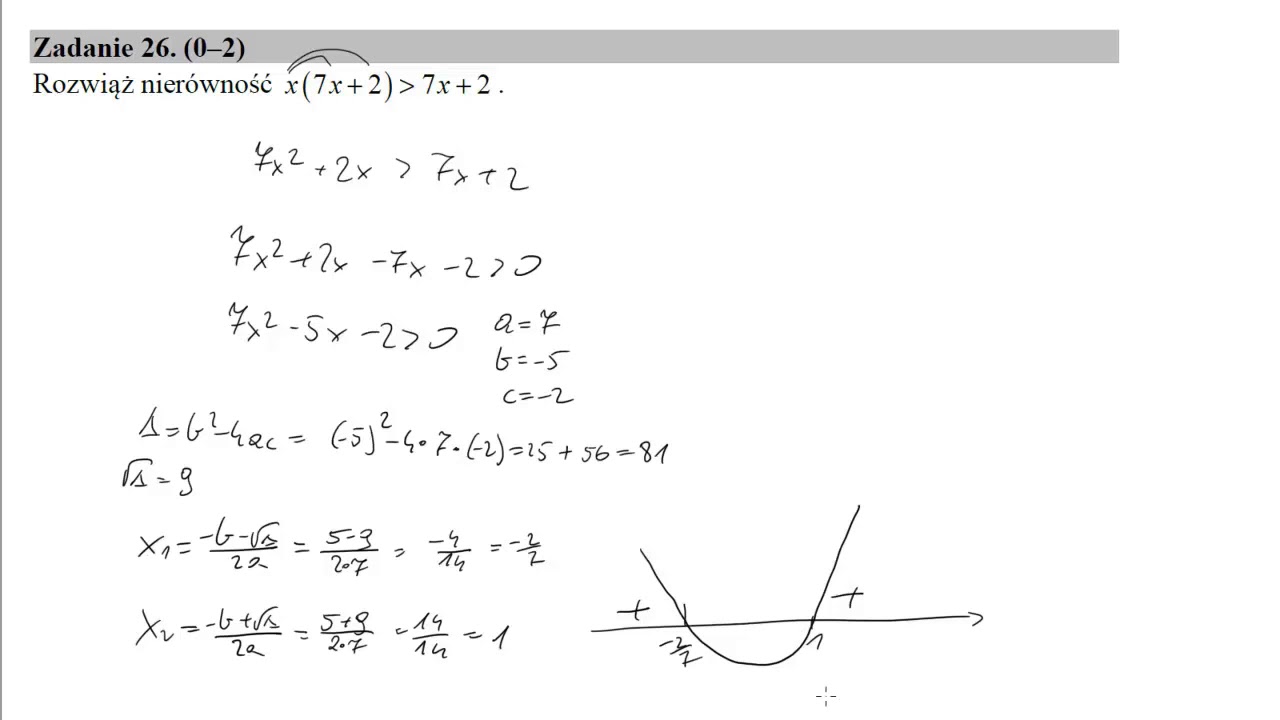 Zadanie 26. (0–2)
Rozwiąż nierówność x(7x+2)>7x+2.
7x² + 2x > 7x + 2
7x² + 2x - 7x - 2 > 0
7x² - 5x - 2 > 0
a = 7
b = -5
c = -2
Δ = b² - 4ac = (-5)² - 4·7·(-2) = 25 + 56 = 81
√Δ = 9
x₁ = (-b-√Δ)/2a = (5-9)/(2·7) = -4/14 = -2/7
x₂ = (-b+√Δ)/2a = (5+9)/(2·7) = 14/14 = 1
+ +
-2/7 1